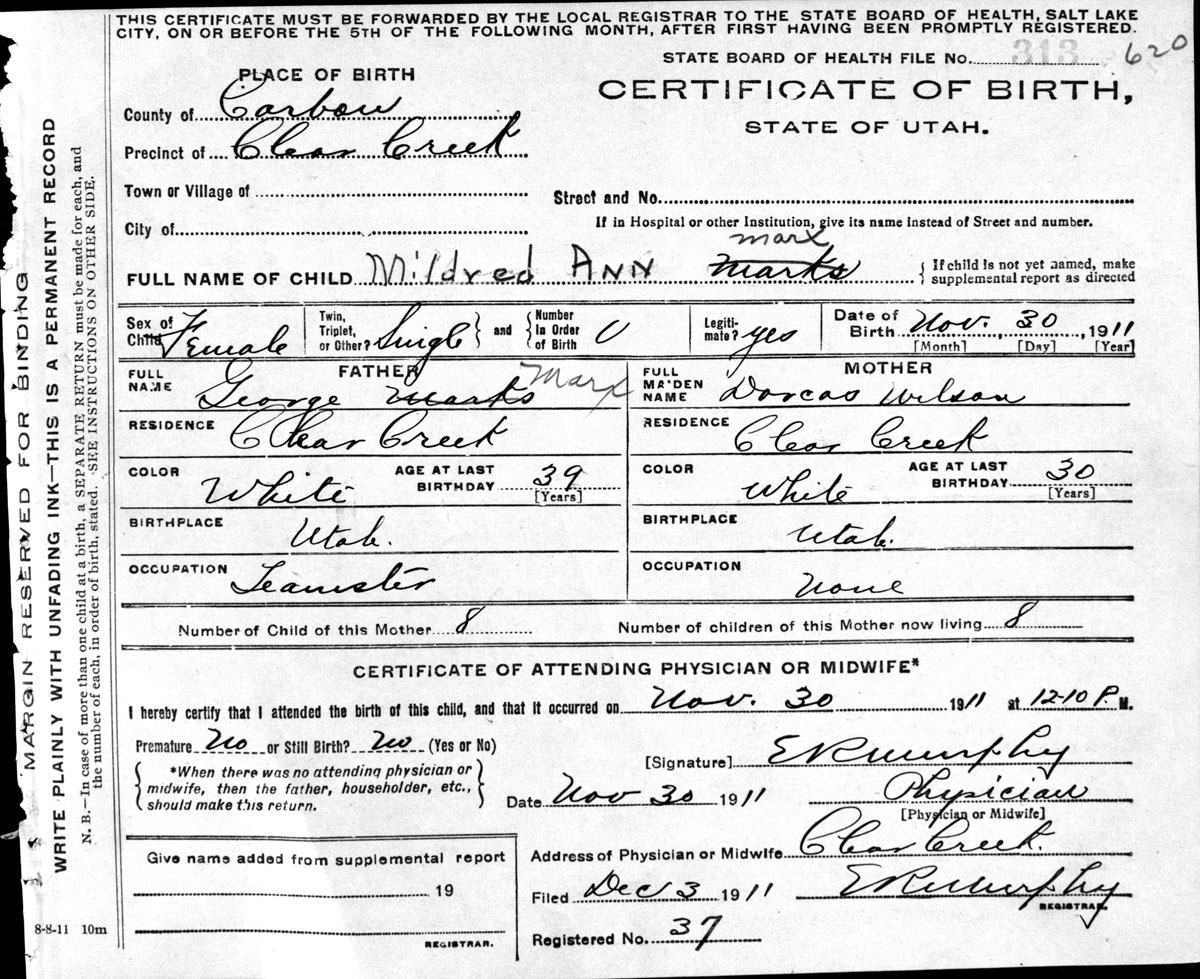 THIS CERTIFICATE MUST BE FORWARDED BY THE LOCAL REGISTRAR TO THE STATE BOARD OF HEALTH, SALT LAKE
CITY, ON OR BEFORE THE 5TH OF THE FOLLOWING MONTH, AFTER FIRST HAVING BEEN PROMPTLY REGISTERED.
STATE BOARD OF HEALTH FILE No. 313 620
PLACE OF BIRTH
CERTIFICATE OF BIRTH,
STATE OF UTAH.
County of Carbon
Precinct of Clear Creek
Town or Village of
Street and No.
City of
If in Hospital or other Institution, give its name instead of Street and number.
marx
FULL NAME OF CHILD Mildred ANN marks
{ If child is not yet named, make
supplemental report as directed
Sex of Child Female
Twin, Triplet, or Other? Single } and { Number In Order of Birth 0
Legiti-mate? yes
Date of Birth Nov. 30, 1911
[Month] [Day] [Year]
FATHER
FULL NAME George marks Marx
RESIDENCE Clear Creek
COLOR White
AGE AT LAST BIRTHDAY 39
[Years]
BIRTHPLACE Utah.
OCCUPATION Teamster
MOTHER
FULL MAIDEN NAME Dorcas Wilson
RESIDENCE Clear Creek
COLOR White
AGE AT LAST BIRTHDAY 30
[Years]
BIRTHPLACE Utah.
OCCUPATION None
Number of Child of this Mother 8
Number of children of this Mother now living 8
CERTIFICATE OF ATTENDING PHYSICIAN OR MIDWIFE*
I hereby certify that I attended the birth of this child, and that it occurred on Nov. 30 1911 at 12-10 P. M.
Premature No or Still Birth? No (Yes or No)
{ *When there was no attending physician or
midwife, then the father, householder, etc.,
should make this return. }
[Signature] E R Murphy
Date Nov 30 1911
Physician
[Physician or Midwife]
Give name added from supplemental report
19
REGISTRAR.
Address of Physician or Midwife Clear Creek.
Filed Dec 3 1911
E R Murphy
REGISTRAR.
Registered No. 37
8-8-11 10m
MARGIN RESERVED FOR BINDING
WRITE PLAINLY WITH UNFADING INK—THIS IS A PERMANENT RECORD
N. B.—In case of more than one child at a birth, a SEPARATE RETURN must be made for each, and
the number of each, in order of birth, stated. SEE INSTRUCTIONS ON OTHER SIDE.